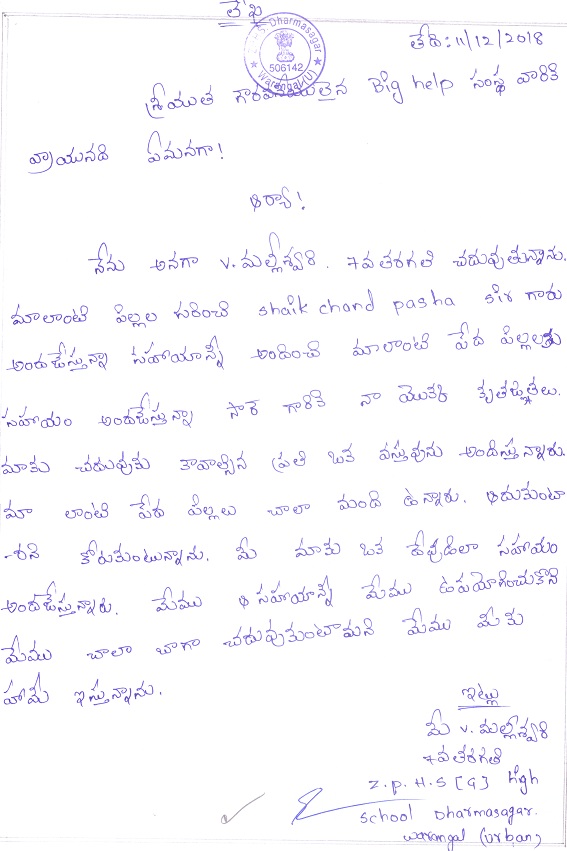 లేఖ
Dharmasagar
506142
Warangal (U)
తేది: 11/12/2018
శ్రీయుత గౌరవనీయులైన Big help సంస్థ వారికి
వ్రాయునది ఏమనగా!
ఆర్యా!
నేను అనగా V. మల్లీశ్వరి. 7వ తరగతి చదువుతున్నాను.
మాలాంటి పిల్లల గురించి shaik chand pasha sir గారు
అందజేస్తున్నా సహాయాన్నీ అందించి మాలాంటి పేద పిల్లలకు
సహాయం అందజేస్తున్నా సార్ గారికి నా యొక్క కృతజ్ఞతలు.
మాకు చదువుకు కావాల్సిన ప్రతి ఒక వస్తువును అందిస్తున్నారు.
మా లాంటి పేద పిల్లలు చాలా మంది ఉన్నారు. ఆదుకుంటా
-రని కోరుకుంటున్నాను. మీ మాకు ఒక దేవుడిలా సహాయం
అందజేస్తున్నారు. మేము ఆ సహాయాన్నీ మేము ఉపయోగించుకొని
మేము చాలా బాగా చదువుకుంటామని మేము మీకు
హామీ ఇస్తున్నాను.
ఇట్లు
మీ V. మల్లీశ్వరి
7వ తరగతి
Z.P.H.S [G] High
school Dharmasagar.
Warangal (urban)